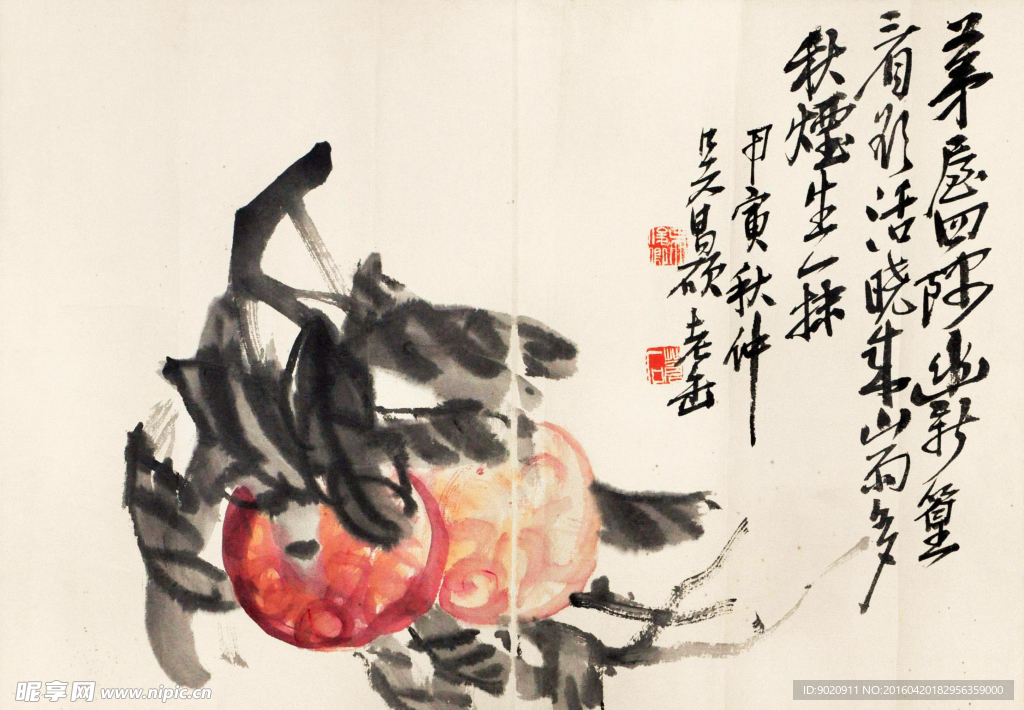 茅屋四幽新篁
三活晓来山雨多
秋煙生一抹
甲寅秋仲
吴昌硕老缶
昵享网 www.nipic.cn
ID:9020911 NO:20160420182956359000